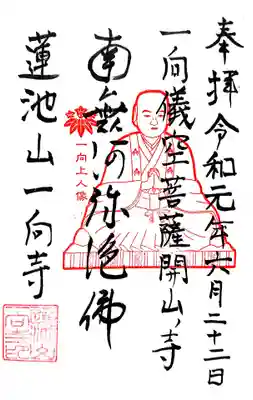 奉拝 令和元年六月二十二日
一向儀空菩薩開山ノ寺
南無阿弥陀佛
一向上人像
蓮池山一向寺